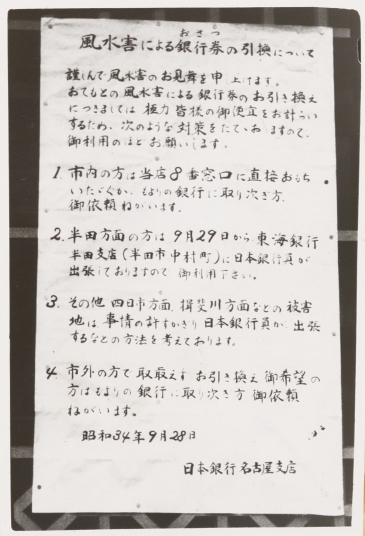 おさつ
風水害による銀行券の引換について
謹しんで風水害のお見舞を申上げます。
おてもとの風水害による銀行券のお引き換え
につきましては極力皆様の御便宜をお計らい
するため、次のような対策をたておりますので、
御利用のほどお願いします。
1. 市内の方は当店8番窓口に直接おもち
いただくか、もよりの銀行に取り次ぎ方
御依頼ねがいます。
2. 半田方面の方は9月29日から東海銀行
半田支店(半田市中村町)に日本銀行員が
出張しておりますので御利用下さい。
3. その他四日市方面、揖斐川方面などの被害
地は、事情の許すかぎり日本銀行員が出張
するなどの方法を考えております。
4. 市外の方で取敢えずお引き換え御希望の
方はもよりの銀行に取り次ぎ方御依頼
ねがいます。
昭和34年9月28日
日本銀行名古屋支店